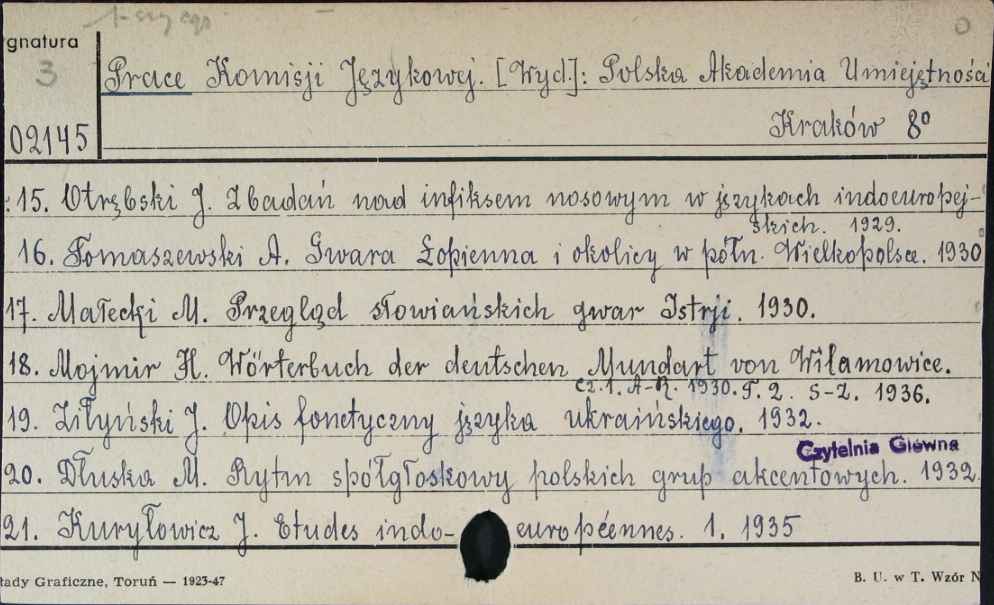 gnatura
3
02145
Prace Komisji Językowej. [Wyd.]: Polska Akademia Umiejętności
Kraków 8º
15. Otrębski J. Z badań nad infiksem nosowym w językach indoeuropej-
skich. 1929.
16. Tomaszewski A. Gwara Łopienna i okolicy w półn. Wielkopolsce. 1930
17. Małecki M. Przegląd słowiańskich gwar Istrji. 1930.
18. Mojmir H. Wörterbuch der deutschen Mundart von Wilamowice.
cz. 1. A-R. 1930. T. 2. S-Z. 1936.
19. Ziłyński J. Opis fonetyczny języka ukraińskiego. 1932.
Czytelnia Główna
20. Dłuska M. Rytm spółgłoskowy polskich grup akcentowych. 1932.
21. Kuryłowicz J. Etudes indo- européennes. 1. 1935
łady Graficzne, Toruń — 1923-47
B. U. w T. Wzór N